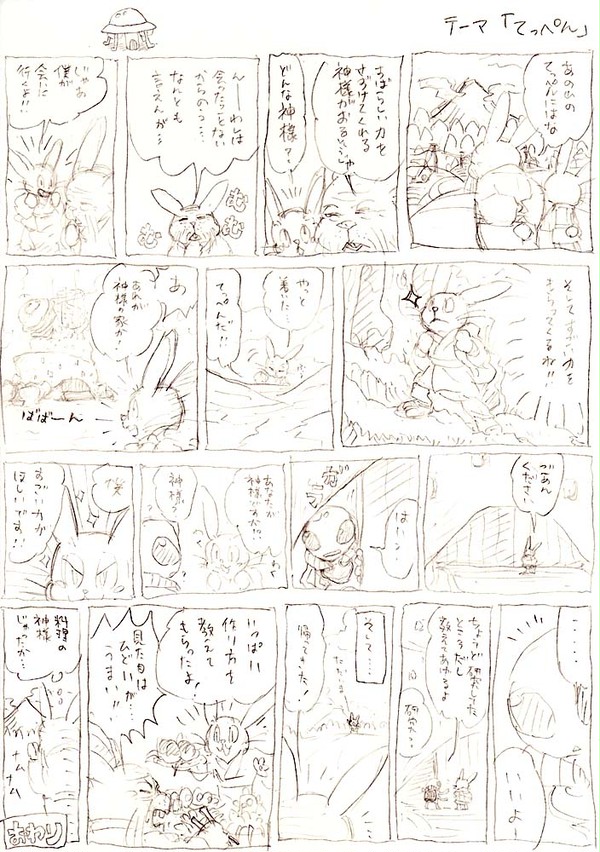 テーマ「てっぺん」
あの山の
てっぺんにはな
すばらしい力を
さずけてくれる
神様がおるんじゃ
どんな神様？
んーわしは
会ったことない
からのう…
なんとも
言えんが…
むむむ
じゃあ
僕が
会いに
行くよ!!
そしてすごい力を
もらってくるね!!
やっと
着いた…
てっぺんだ!!
あ
あれが
神様の家か!
ばばーん
ごめん
ください
はい…
あなたが
神様ですか!!
神様？
わく
わく
すごい力が
ほしいです!!
・・・・
いいよー
ちょうど研究した
ところだし
教えてあげるよ
研究？
そして…
ただいま
帰ってきた!
いっぱい
作り方を
教えて
もらったよ!
見た目は
ひどいが…
うまい!!
料理の
神様
じゃったか…
ナム
ナム
おわり